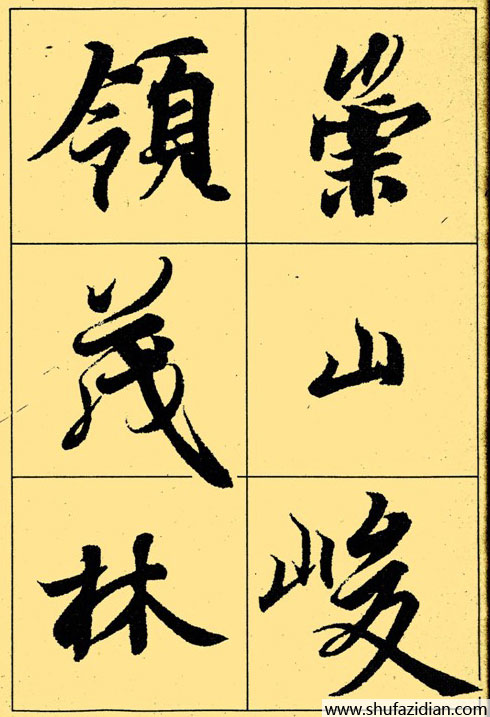 崇山峻
領茂林
www.shufazidian.com